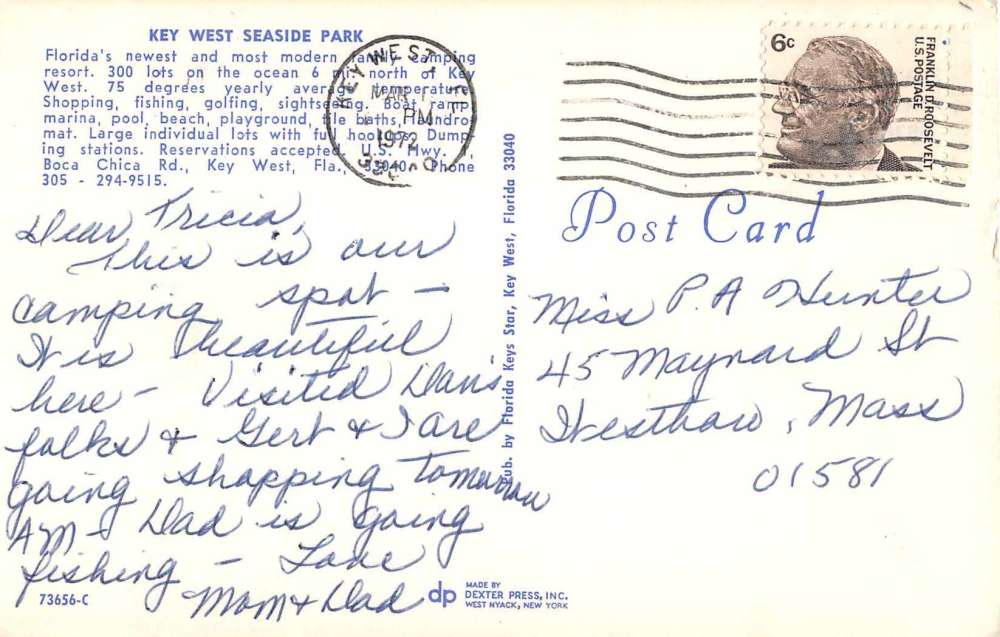 KEY WEST SEASIDE PARK
Florida's newest and most modern family camping
resort. 300 lots on the ocean 6 mi. north of Key
West. 75 degrees yearly average temperature.
Shopping, fishing, golfing, sightseeing. Boat ramp,
marina, pool, beach, playground, tile baths, laundro-
mat. Large individual lots with full hookups. Dump-
ing stations. Reservations accepted. U.S. Hwy.
Boca Chica Rd., Key West, Fla., 33040. Phone
305 - 294-9515.
KEY WEST
PM
1972
6c
FRANKLIN D. ROOSEVELT
U.S. POSTAGE
Post Card
Dear Tricia,
This is our
camping spot -
It is beautiful
here - Visited Dans
folks & Gert & I are
going shopping tomorrow
AM - Dad is going
fishing - Love
Mom & Dad
Miss P. A Hunter
45 Maynard St
Westboro, Mass
01581
Pub. by Florida Keys Star, Key West, Florida 33040
73656-C
dp
MADE BY
DEXTER PRESS, INC.
WEST NYACK, NEW YORK